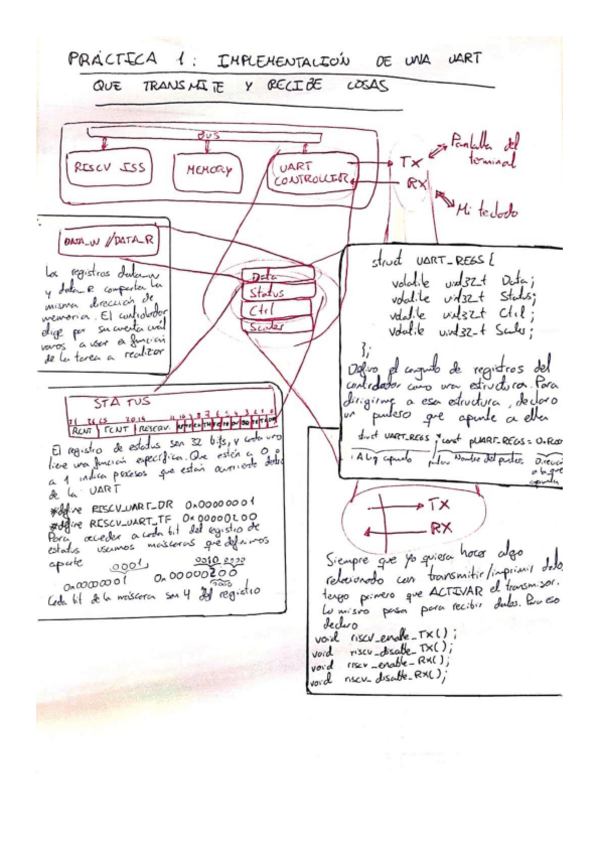 PRÁCTICA 1: IMPLEMENTACIÓN DE UNA UART
QUE TRANSMITE Y RECIBE COSAS
BUS
RISCV ISS
MEMORY
UART
CONTROLLER
TX
RX
Pantalla del
terminal
Mi teclado
DATA_W // DATA_R
Los registros data_w
y data_R comparten la
misma dirección de
memoria. El controlador
elige por su cuenta cuál
vamos a usar en función
de la tarea a realizar
Data
Status
Ctrl
Scaler
struct UART_REGS {
volatile uint32_t Data;
volatile uint32_t Status;
volatile uint32_t Ctrl;
volatile uint32_t Scaler;
};
Defino el conjunto de registros del
controlador como una estructura. Para
dirigirme a esa estructura, declaro
un puntero que apunte a ella
struct UART_REGS *const pUART_REGS =
A lo q apunta
Nombre del puntero
STATUS
31 26 25 20
RCNT TCNT RESERV.
El registro de estatus son 32 bits, y cada uno
tiene una función específica. Que estén a 0 o
a 1 indica procesos que están
de la UART
#define RISCV_UART_DR 0x00000001
#define RISCV_UART_TF 0x00000200
Para acceder a cada bit del registro de
estatus usamos máscaras que definimos
aparte
0001
0x00000001
0010 0000
0x00000200
0000
Cada bit de la máscara son 4 del registro
TX
RX
Siempre que yo quiera hacer algo
relacionado con transmitir/imprimir datos,
tengo primero que ACTIVAR el transmisor.
Lo mismo pasa para recibir datos. Para eso
declaro
void riscv_enable_TX();
void riscv_disable_TX();
void riscv_enable_RX();
void riscv_disable_RX();